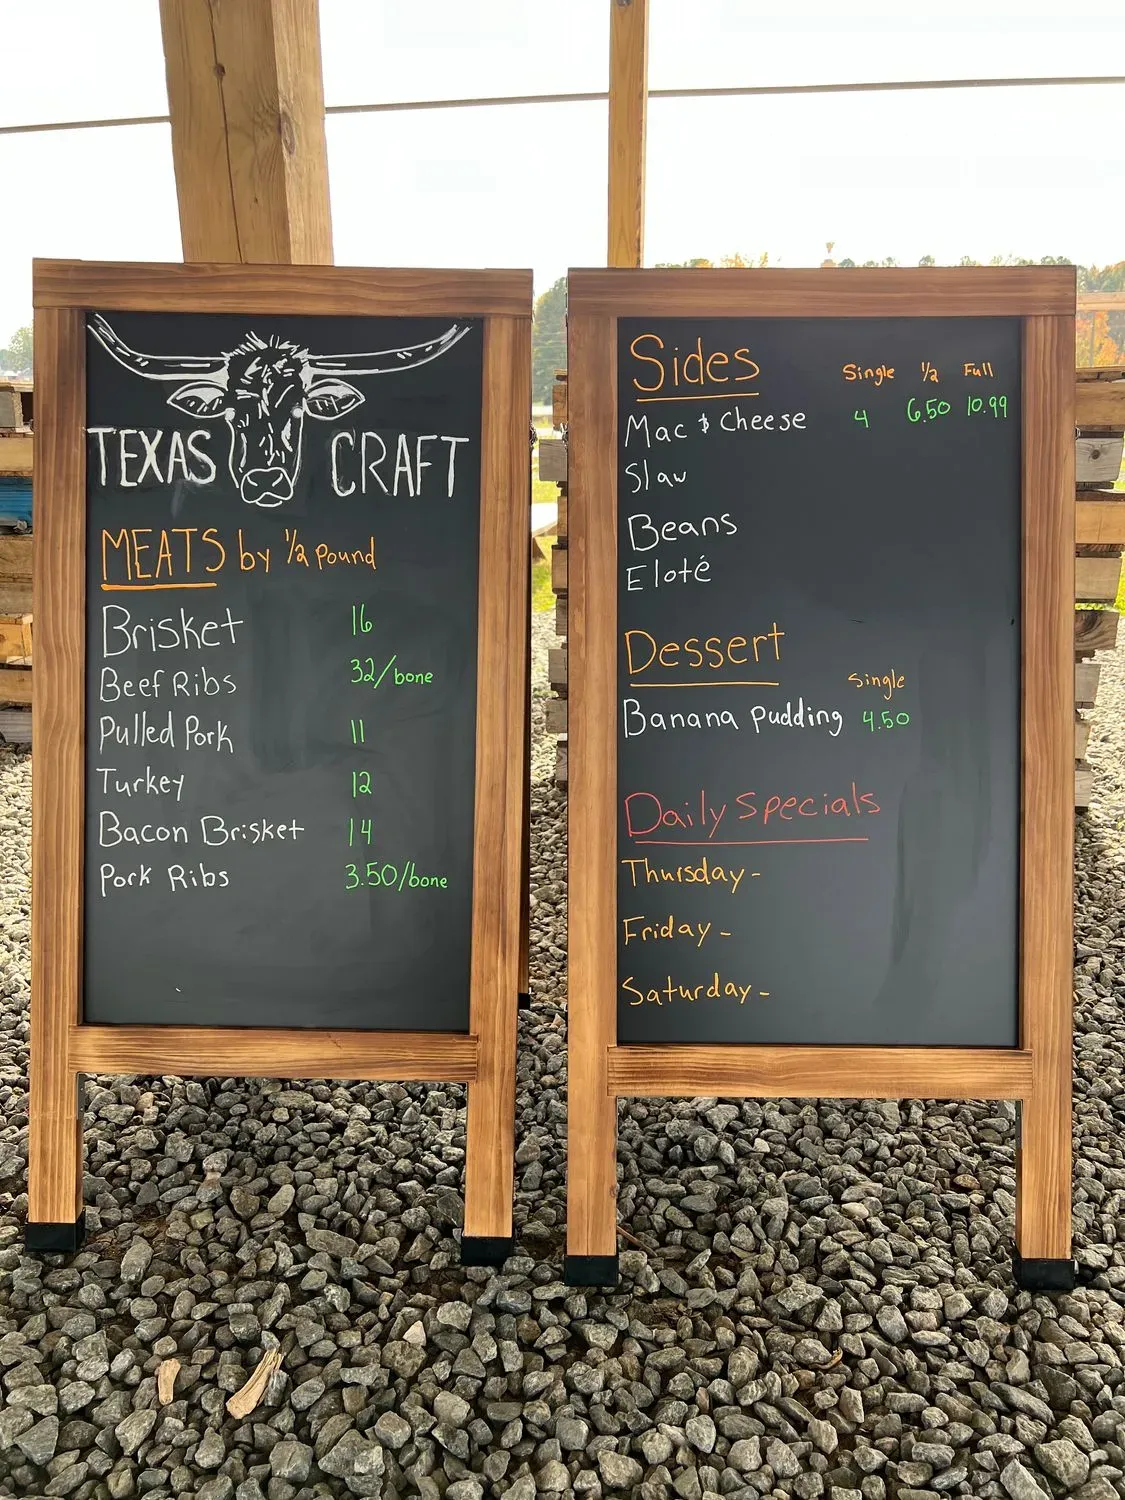 TEXAS CRAFT
MEATS by 1/2 Pound
Brisket 16
Beef Ribs 32/bone
Pulled Pork 11
Turkey 12
Bacon Brisket 14
Pork Ribs 3.50/bone
Sides Single 1/2 Full
Mac & Cheese 4 6.50 10.99
Slaw
Beans
Eloté
Dessert
Single
Banana Pudding 4.50
Daily Specials
Thursday -
Friday -
Saturday -